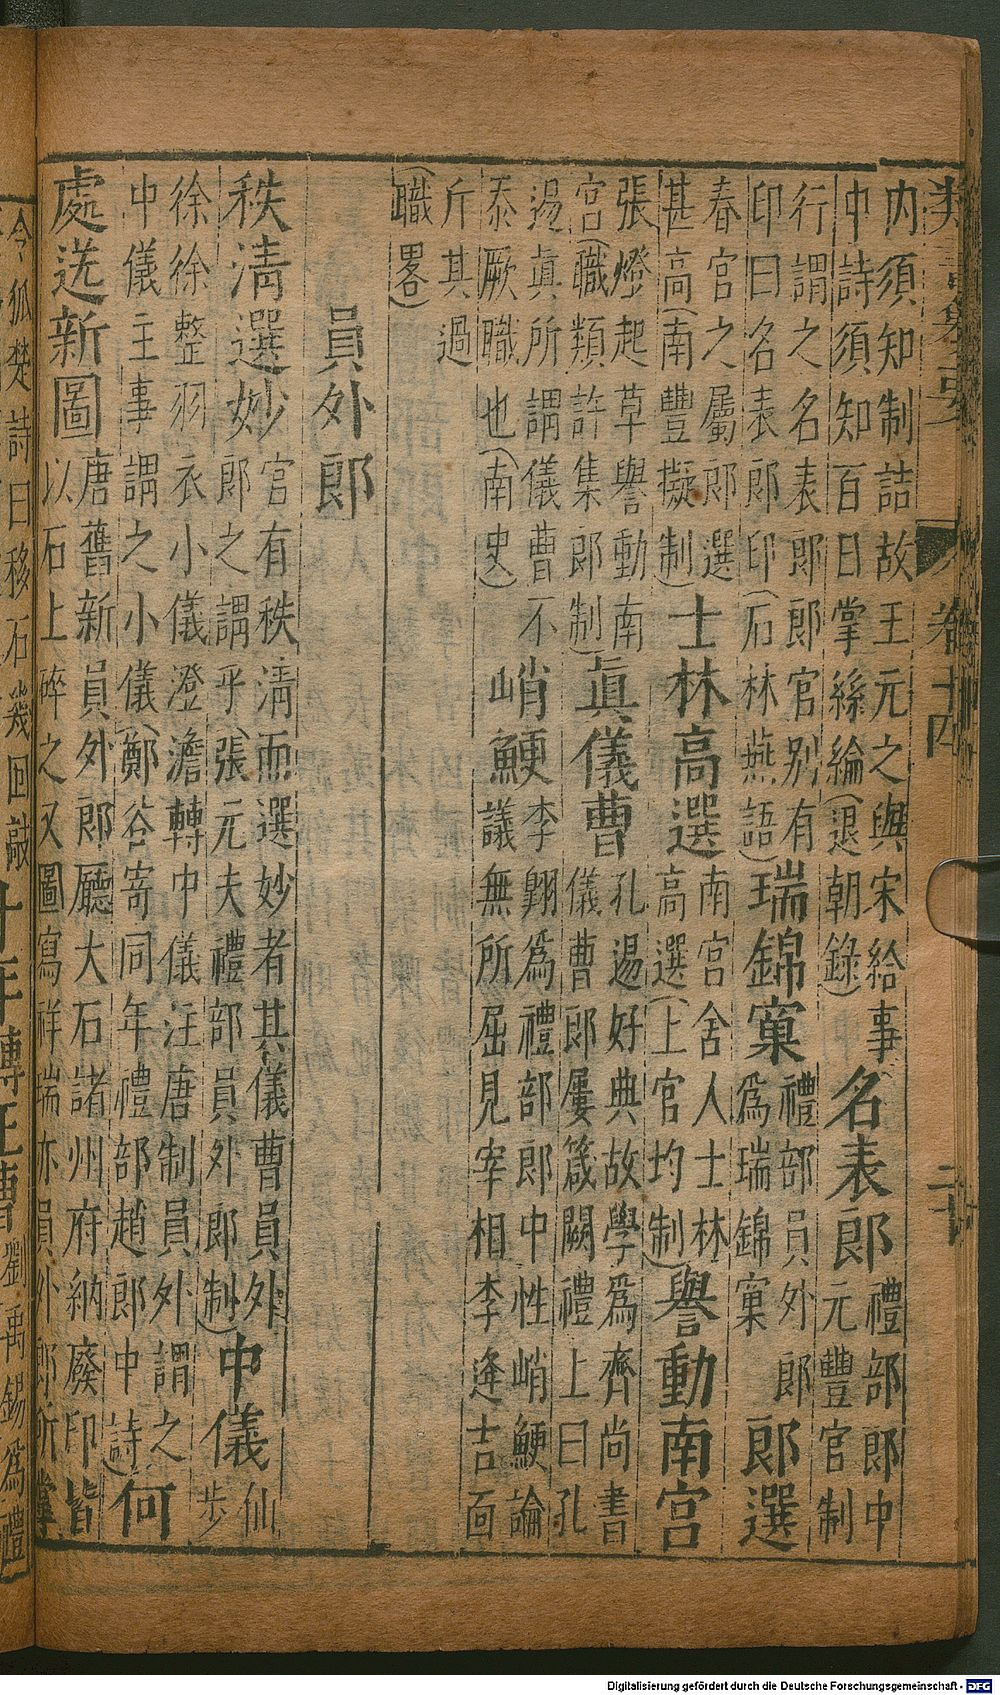 卷十四
内須知制詰故王元之與宋給事
中詩須知百日掌絲綸(退朝錄)
名表郎
禮部郎中
元豐官制
行謂之名表郎郎官別有
印曰名表郎印(石林燕語)
瑞錦窠
禮部員外郎
爲瑞錦窠
郎選
春宮之屬郎選
甚高(南豐擬制)
士林高選
南宮舍人士林
高選(上官均制)
譽動南宮
張燈起草譽動南
宮(職類許集郎制)
眞儀曹
孔逷好典故學爲齊尚書
儀曹郎屢箴闕禮上曰孔
逷眞所謂儀曹不
泰厥職也(南史)
峭鯁
李翺爲禮部郎中性峭鯁論
議無所屈見宰相李逢吉面
斥其過
(職畧)
員外郎
秩淸選妙
官有秩淸而選妙者其儀曹員外
郎之謂乎(張元夫禮部員外郎制)
中儀
仙
步
徐徐整羽衣小儀澄澹轉中儀注唐制員外謂之
中儀主事謂之小儀(鄭谷寄同年禮部趙郎中詩)
何
處迗新圖
唐舊新員外郎廳大石諸州府納廢印皆
以石上碎之又圖寫祥瑞亦員外郎所掌
令狐楚詩曰移石幾回敲
劉禹錫爲禮
Digitalisierung gefördert durch die Deutsche Forschungsgemeinschaft - DFG